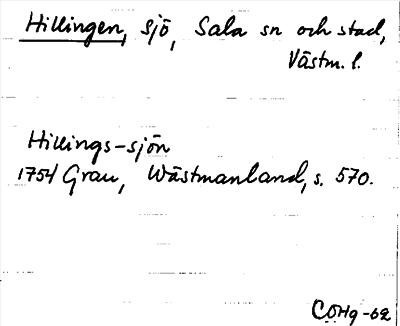 Hillingen, sjö, Sala sn och stad,
Västm. l.
Hillings-sjön
1754 Grau, Wästmanland, s. 570.
COHg -62